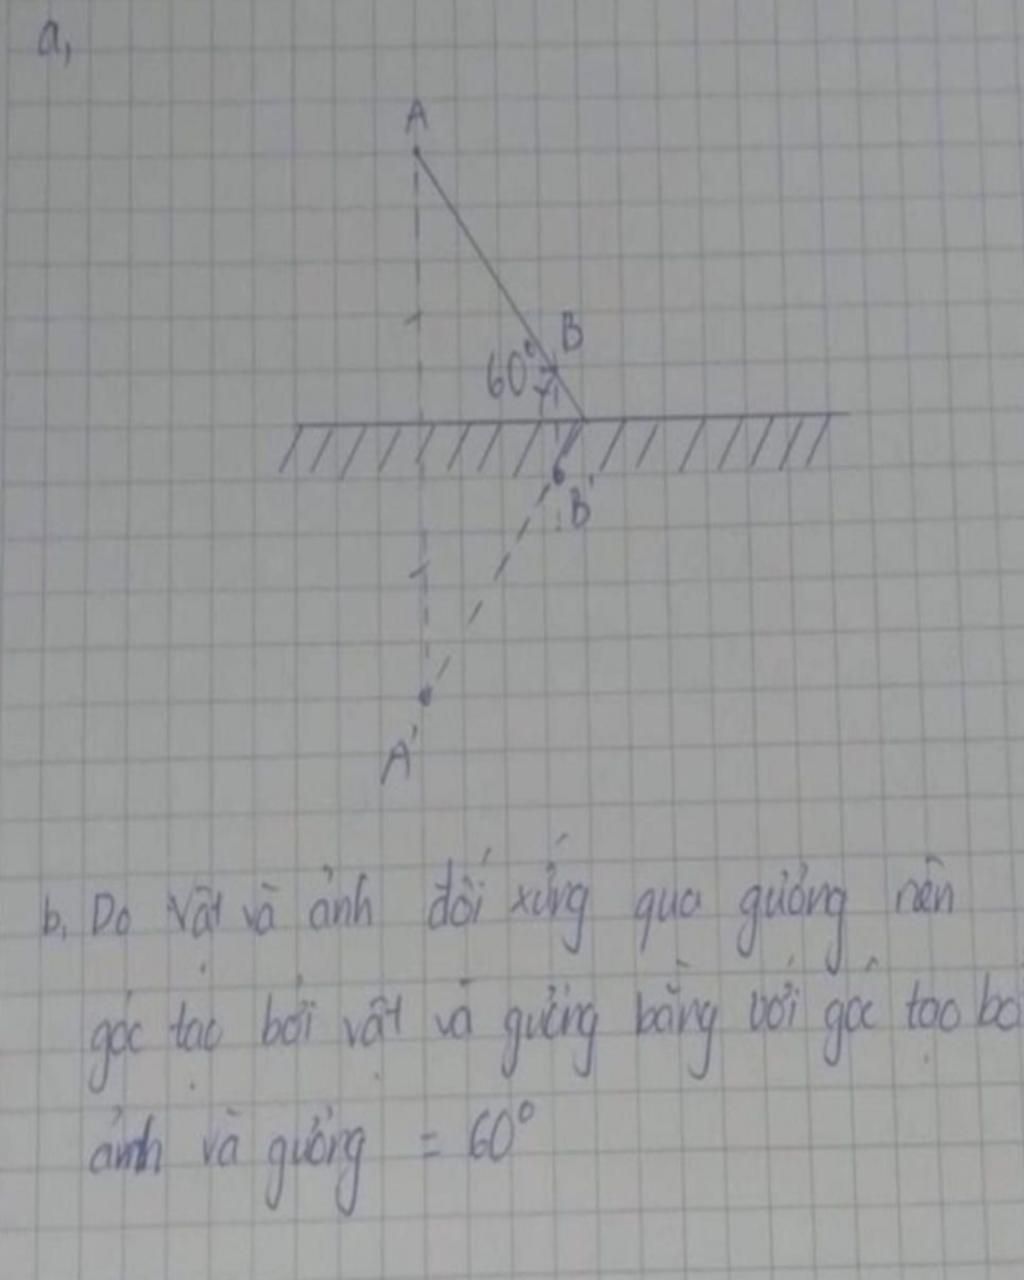 a,
A
B
60°
B'
A'
b, Do vật và ảnh đối xứng qua gương nên
góc tạo bởi vật và gương bằng với góc tạo bở
ảnh và gương = 60°